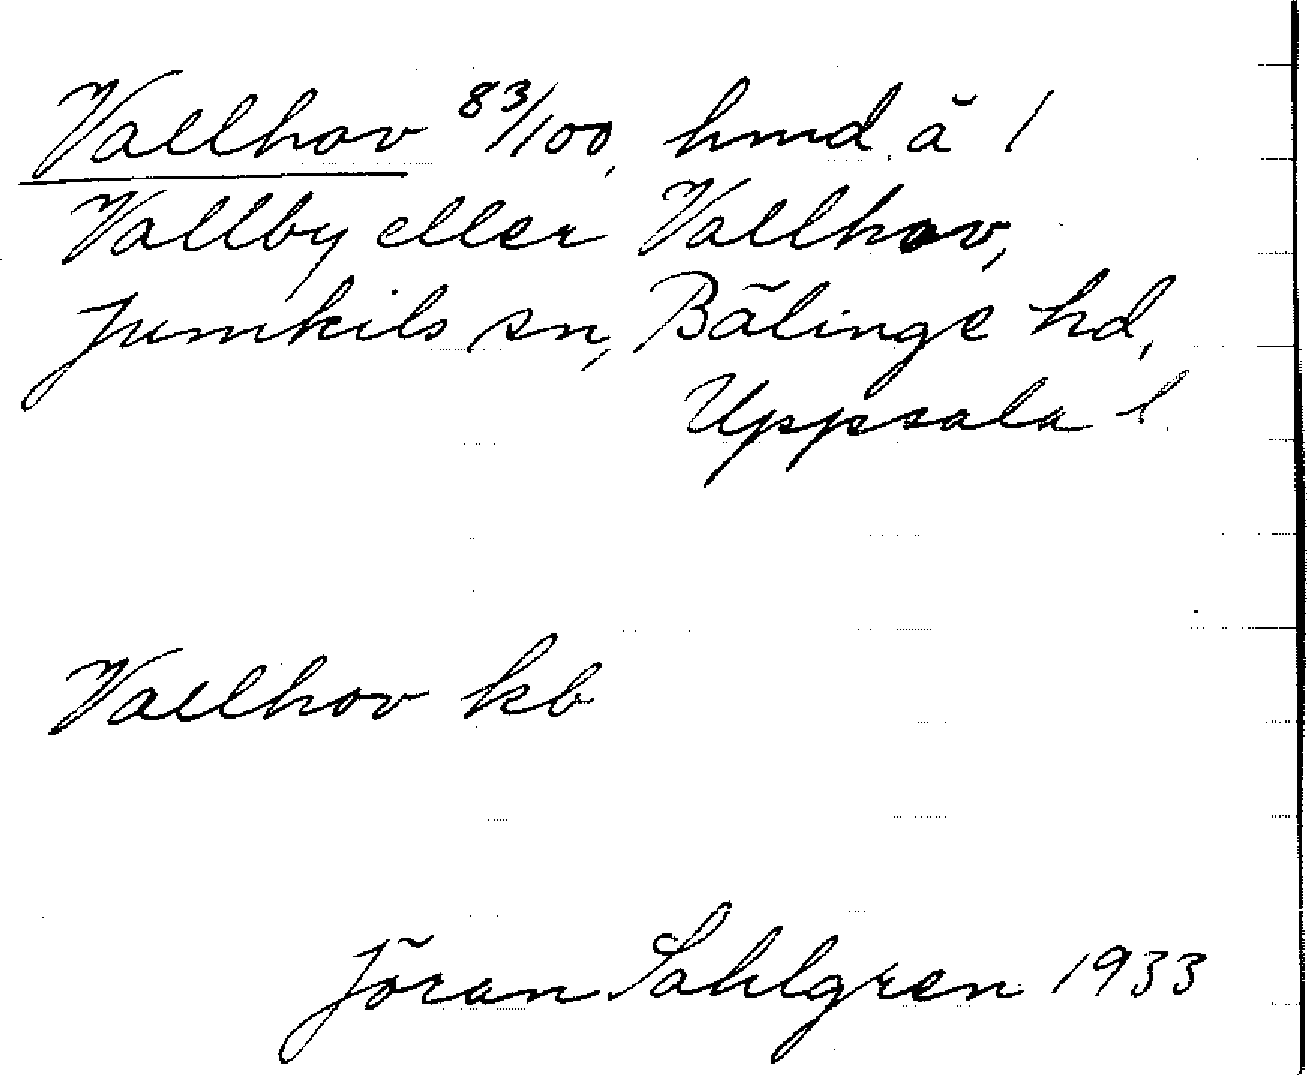 Vallhov 83/100, hmd. å 1
Vallby eller Vallhov,
Jumkils sn, Bälinge hd,
Uppsala l.
Vallhov kb
Jöran Sahlgren 1933